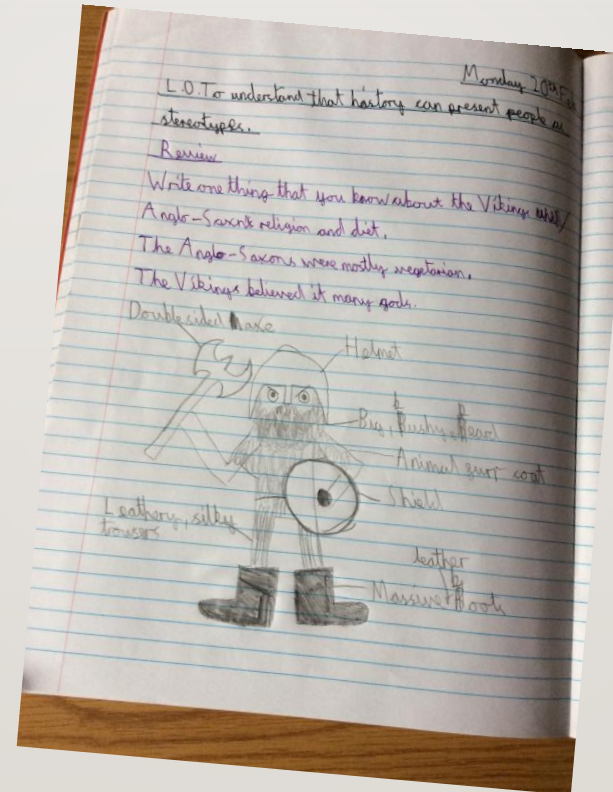 Monday 20th Feb
L.O. To understand that history can present people as
stereotypes.
Review
Write one thing that you know about the Vikings
Anglo-Saxons religion and diet.
The Anglo-Saxons were mostly vegetarian.
The Vikings believed it many gods.
Double sided axe
Helmet
Big, bushy beard
Animal furr coat
Shield
Leathery, silky
trousers
leather
Massive boots